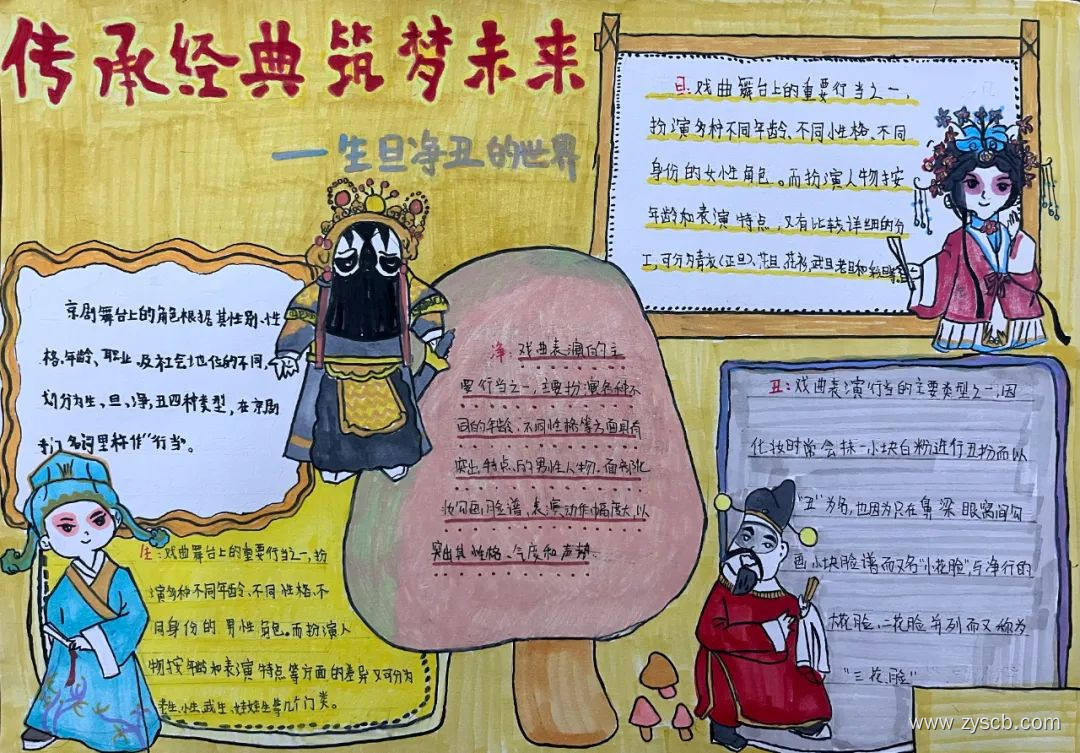 传承经典筑梦未来
一生旦净丑的世界
京剧舞台上的角色根据其性别、性
格、年龄、职业及社会地位的不同,
划分为生、旦、净、丑四种类型,在京剧
专门名词里称作"行当"。
旦:戏曲舞台上的重要行当之一,
扮演多种不同年龄、不同性格、不同
身份的女性角色。而扮演人物按
年龄和表演特点,又有比较详细的分
工,可分为青衣(正旦)、花旦、花衫、武旦、老旦和彩旦等
净:戏曲表演的主
要行当之一,主要扮演各种不
同的年龄、不同性格等方面具有
突出特点的男性人物。面部化
妆勾画脸谱、表演动作幅度大,以
突出其性格、气度和声势。
生:戏曲舞台上的重要行当之一,扮
演多种不同年龄、不同性格、不
同身份的男性角色。而扮演人
物按年龄和表演特点等方面的差异又可分为
老生、小生、武生、娃娃生等几个门类。
丑:戏曲表演行当的主要类型之一,因
化妆时常会抹一小块白粉进行丑扮而以
"丑"为名,也因为只在鼻梁眼窝间勾
画小块脸谱而又名"小花脸",与净行的
大花脸、二花脸并列而又称为
"三花脸"
www.zyscb.com